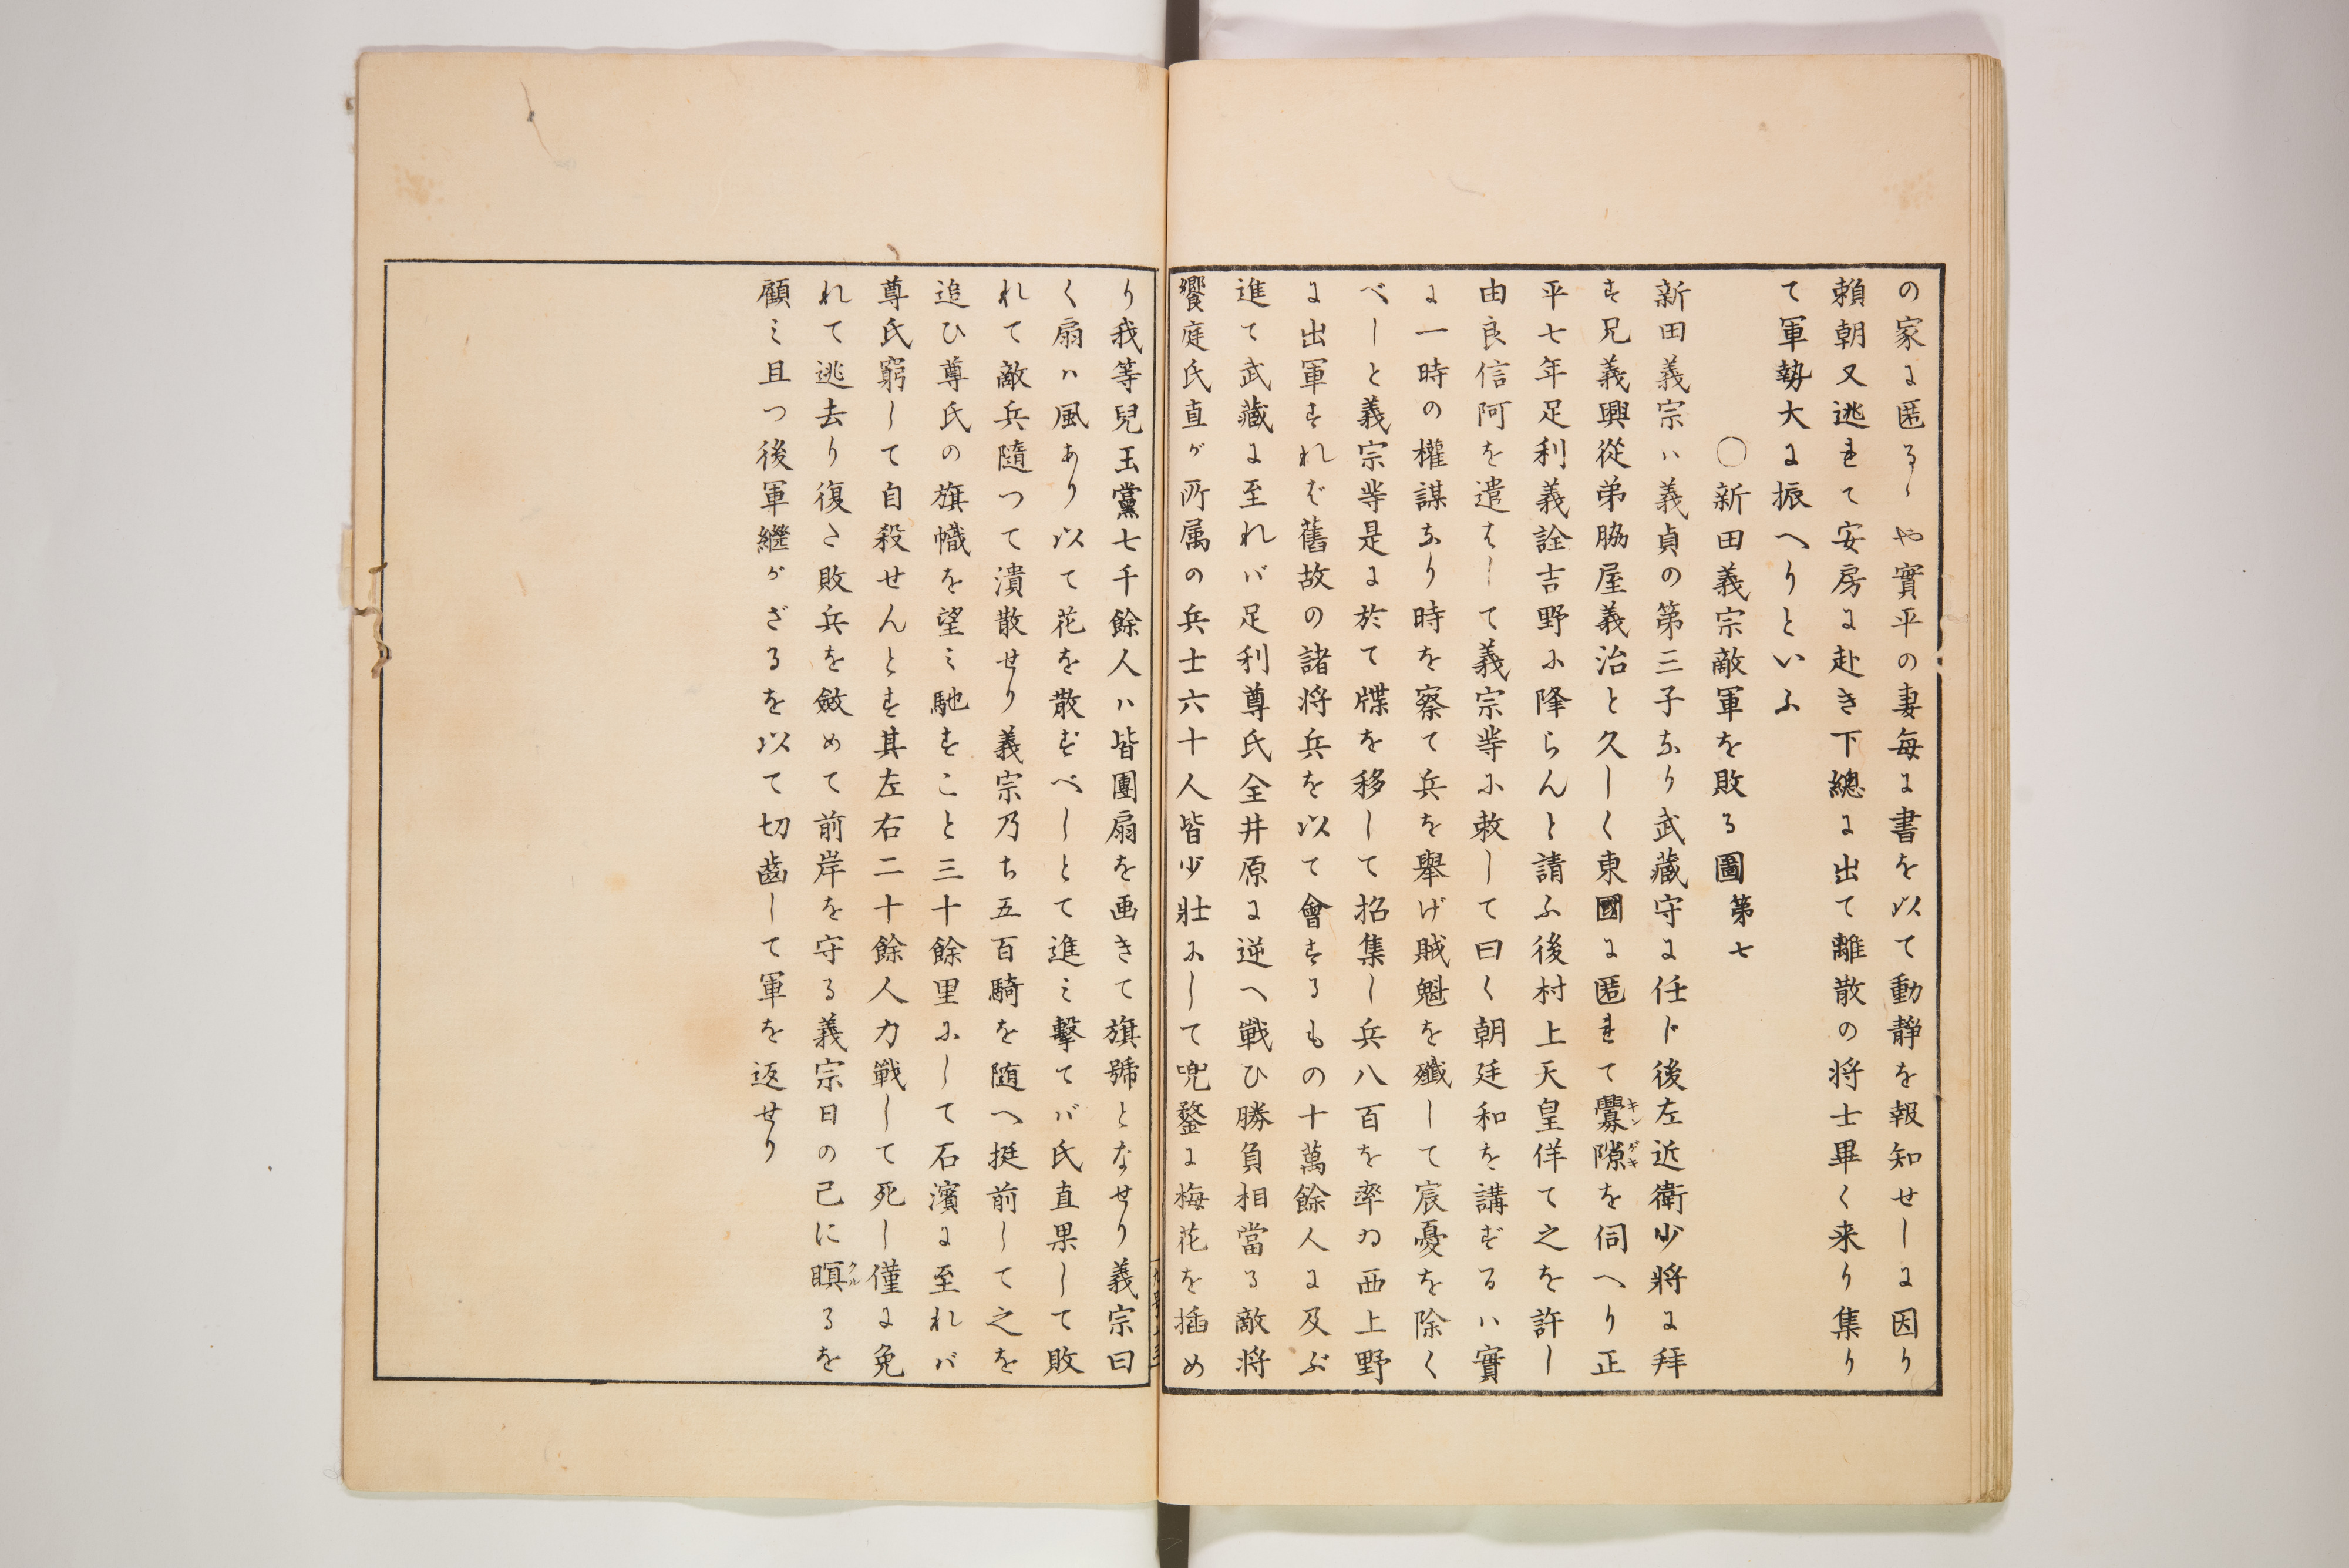 の家に匿るゝや實平の妻毎に書を以て動静を報知せしに因り
頼朝又逃れて安房に赴き下總に出て離散の将士畢く来り集り
て軍勢大に振へりといふ
○新田義宗敵軍を敗る圖第七
新田義宗ハ義貞の第三子なり武藏守に任ド後左近衛少将に拜
す兄義興從弟脇屋義治と久しく東國に匿れて釁隙を伺へり正
キンゲキ
平七年足利義詮吉野に降らんと請ふ後村上天皇佯て之を許し
由良信阿を遣はして義宗等に敕して曰く朝廷和を講ずるハ實
に一時の權謀なり時を察て兵を舉げ賊魁を殲して宸憂を除く
べしと義宗等是に於て牒を移して招集し兵八百を率ゐ西上野
に出軍すれば舊故の諸将兵を以て會するもの十萬餘人に及ぶ
進て武藏に至れバ足利尊氏全井原に逆へ戦ひ勝負相當る敵将
饗庭氏直が所属の兵士六十人皆少壯にして兜鍪に梅花を插め
り我等兒玉黨七千餘人ハ皆團扇を画きて旗號となせり義宗曰
く扇ハ風あり以て花を散ずべしとて進ミ擊てバ氏直果して敗
れて敵兵隨つて潰散せり義宗乃ち五百騎を随へ挺前して之を
追ひ尊氏の旗幟を望ミ馳すこと三十餘里にして石濱に至れバ
尊氏窮して自殺せんとす其左右二十餘人力戦して死し僅に免
れて逃去り復た敗兵を斂めて前岸を守る義宗日の已に瞑るを
クル
顧ミ且つ後軍繼がざるを以て切齒して軍を返せり